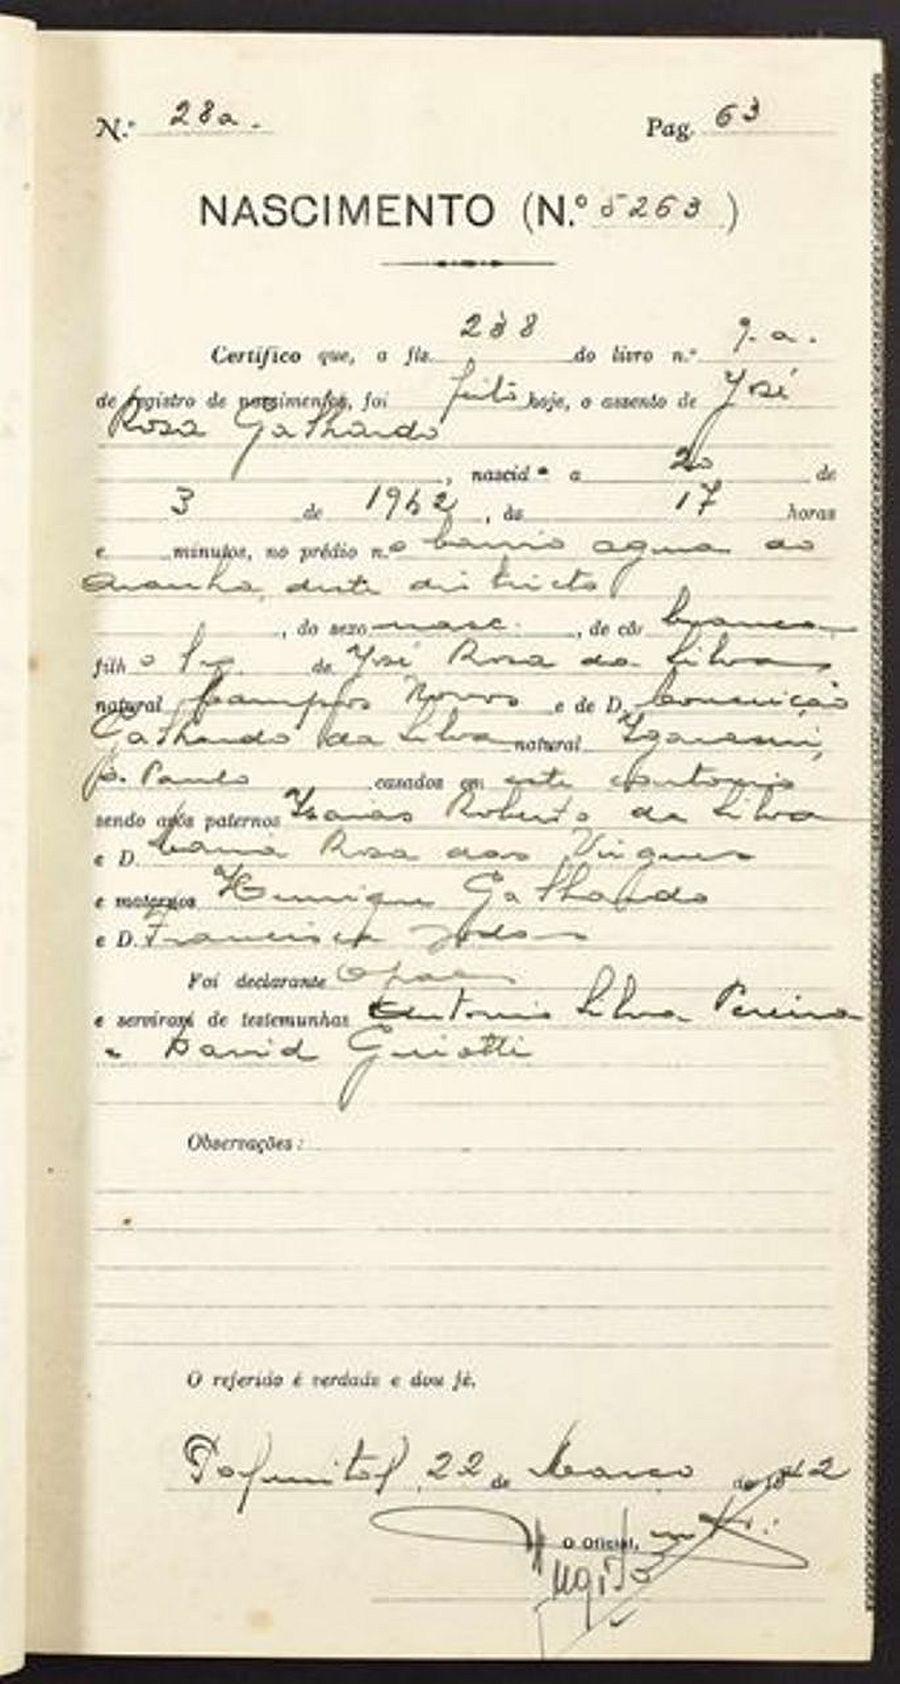 N.º 28a. Pag. 63
NASCIMENTO (N.º 5263)
288 9-a.
Certifico que, a fls. do livro n.º
de registro de nascimentos, foi feito hoje, o assento de José
Rosa Galhardo
, nascido a 20 de
3 de 1942, ás 17 horas
e minutos, no prédio n.º bairro agua do
Aranha, deste districto
, do sexo masc. , de côr branca
filho lg. de José Rosa da Silva
natural Campos Novos e de D. Conceição
Galhardo da Silva natural
S. Paulo casados em este cartorio
sendo avós paternos Isaias Roberto da Silva
e D. Maria Rosa das Virgens
e maternos Henrique Galhardo
e D. Francisca
Foi declarante O pae
e serviram de testemunhas Antonio Silva Pereira
e David
Observações:
O referido é verdade e dou fé.
22 de Março de 1942
O Oficial,